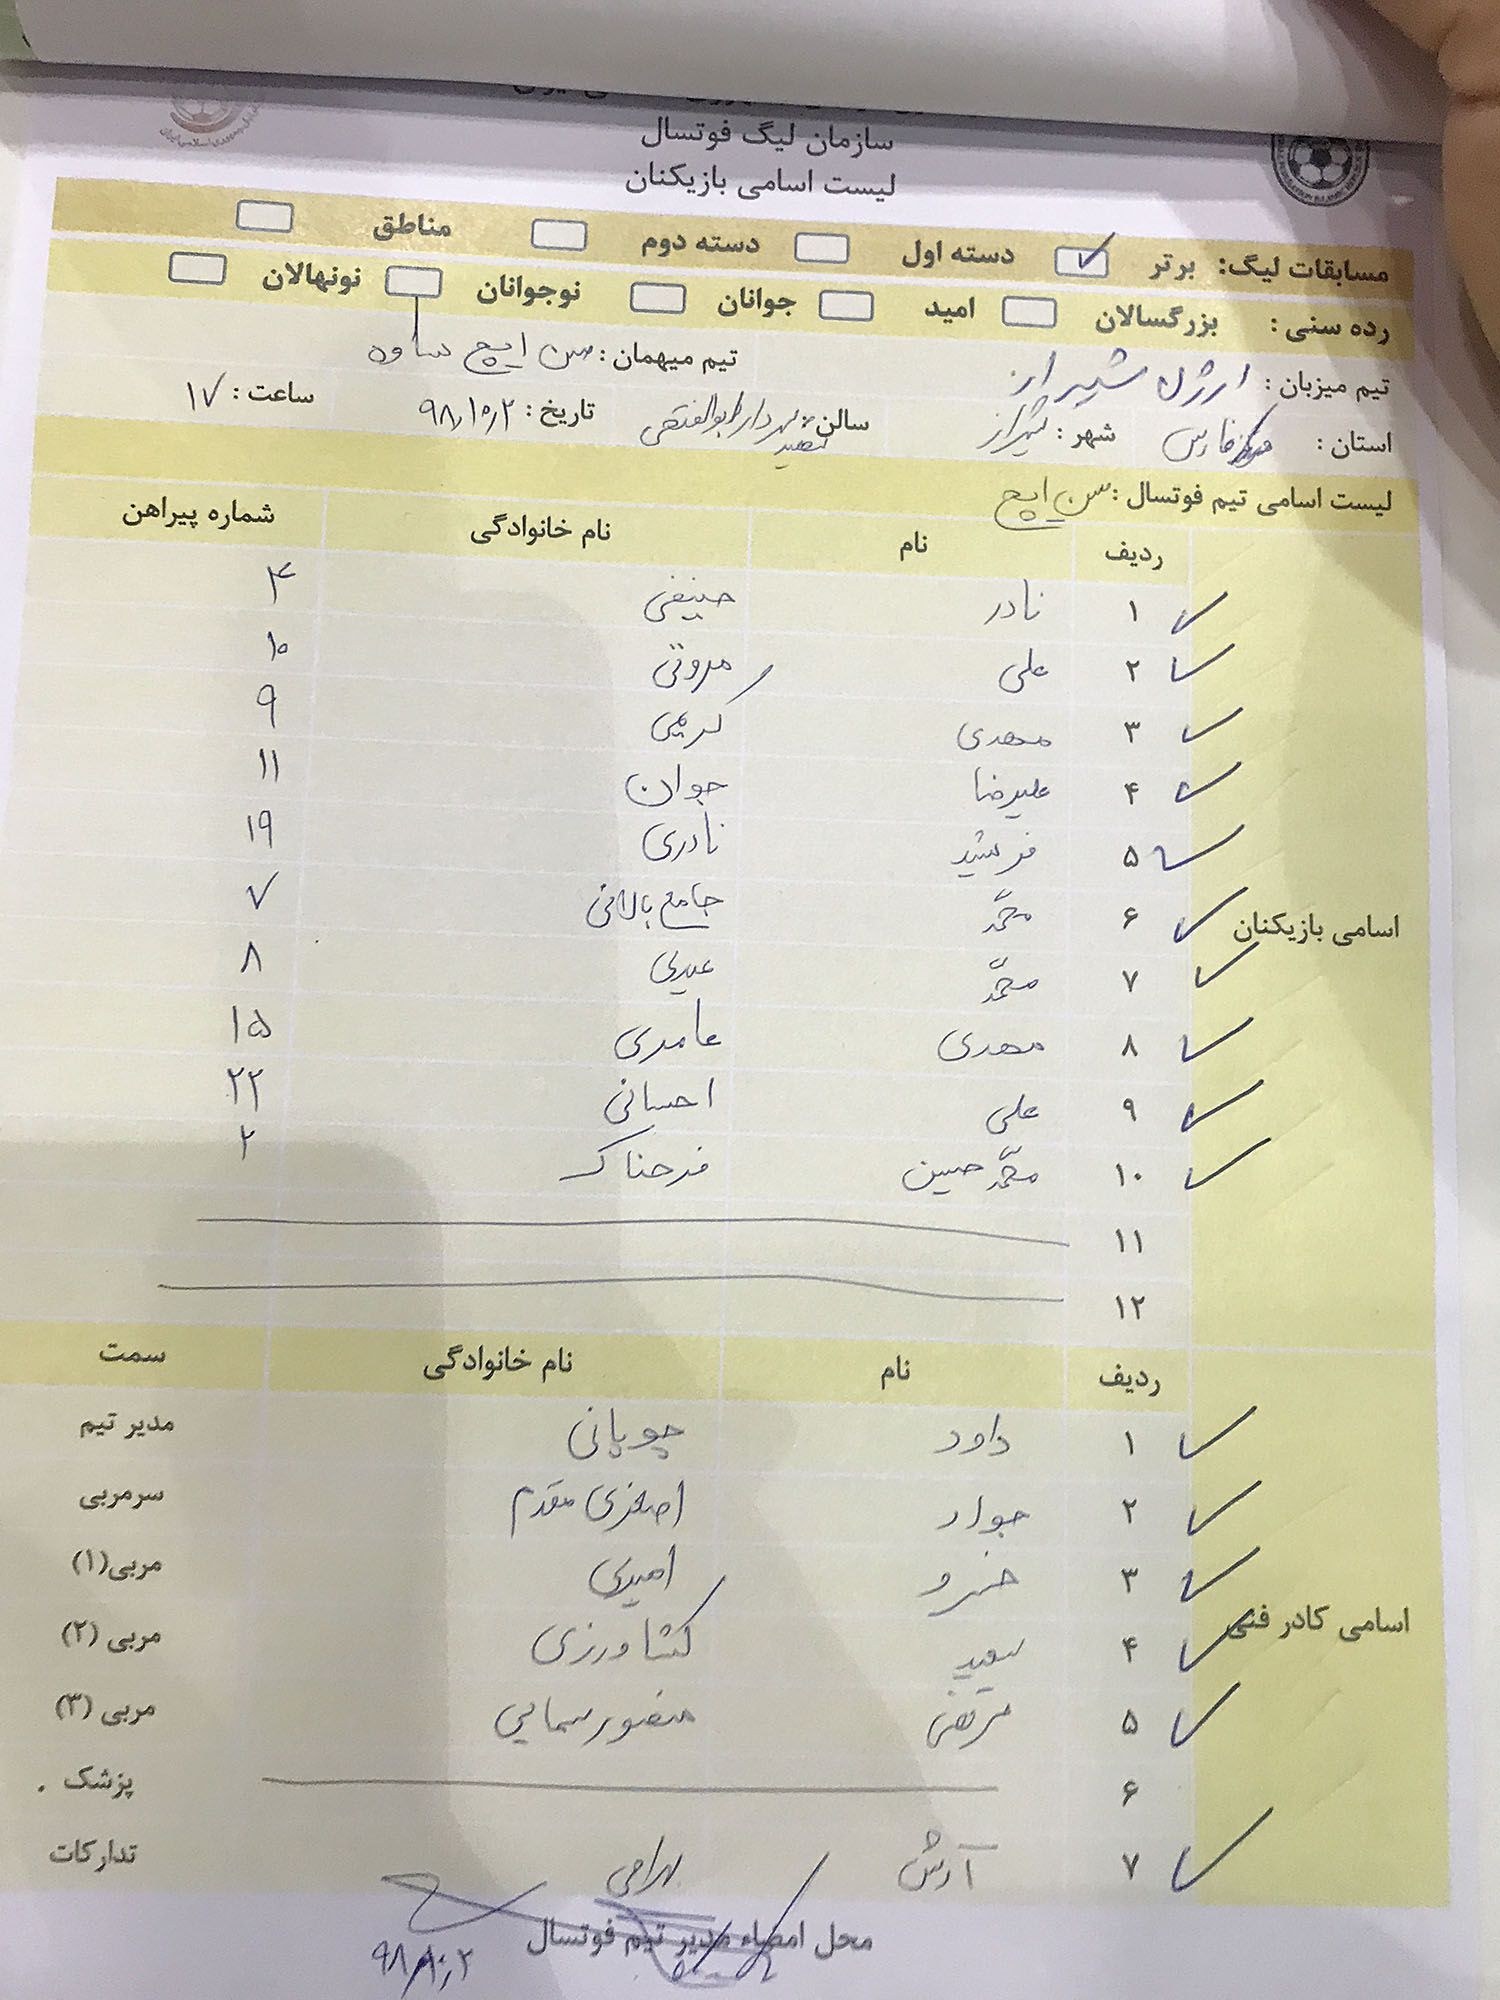 سازمان لیگ فوتسال
لیست اسامی بازیکنان
مسابقات لیگ: برتر دسته اول دسته دوم مناطق
رده سنی: بزرگسالان امید جوانان نوجوانان نونهالان
تیم میزبان: ارژن شیراز تیم میهمان: سن ایچ ساوه
استان: فارس شهر: شیراز سالن: شهید سردار ابوالفتحی تاریخ: ۹۸،۱۰،۲ ساعت: ۱۷
لیست اسامی تیم فوتسال: سن ایچ
ردیف نام نام خانوادگی شماره پیراهن
۱ نادر حنیفی ۴
۲ علی مروتی ۱۰
۳ مهدی کریمی ۹
۴ علیرضا جوان ۱۱
۵ فرشید نادری ۱۹
۶ محمّد جامع بالائی ۷
اسامی بازیکنان
۷ محمّد عبدی ۸
۸ مهدی عامری ۱۵
۹ علی احسانی ۲۲
۱۰ محمّد حسین فرحناک ۲
۱۱
۱۲
ردیف نام نام خانوادگی سمت
۱ داود چوپانی مدیر تیم
۲ جواد اصغری مقدم سرمربی
۳ خسرو امیری مربی(۱)
اسامی کادر فنی
۴ سعید کشاورزی مربی (۲)
۵ مرتضی منصورسمایی مربی (۳)
۶ پزشک
۷ آرش بهرامی تدارکات
محل امضاء مدیر تیم فوتسال
۹۸،۱۰،۲